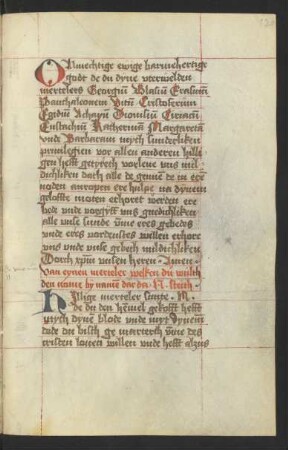 O Almechtige ewige barmehertige
godt de du dyne vterwelden
mertelers Georgiū Blasiū Erasmū
Panthaleonem Vitū Cristoferum
Egidiū Achaciū Dionisiū Ciriacū
Eustachiū Katherinā Margareta
vnde Barbaram mych sunderliken
priuilegien vor allen anderen hilli
gen hefft getzyret vorlene vns mil
dichliken dath alle de genne de in ere
noden anropen ere hulpe na dynem
gelofte moten erhoret werden ere
bede vnde vorgyff vns gnedichliken
alle vnse sunde vme eres gebedes
vnde eres vordenstes willen erhore
vns vnde vnse gebeth mildichliken
Dorch xpm vnsen heren · Amen ·
Van eynen merteler welken du wulth
den nome by namē dar da · N · steith ·
Hillige merteler sante · N ·
de du den hēmel gekofft hefft
myth dynē blode vnde myt dynem
dode du bisth ge martert vme des
cristen louen willen vnde hefft alzus